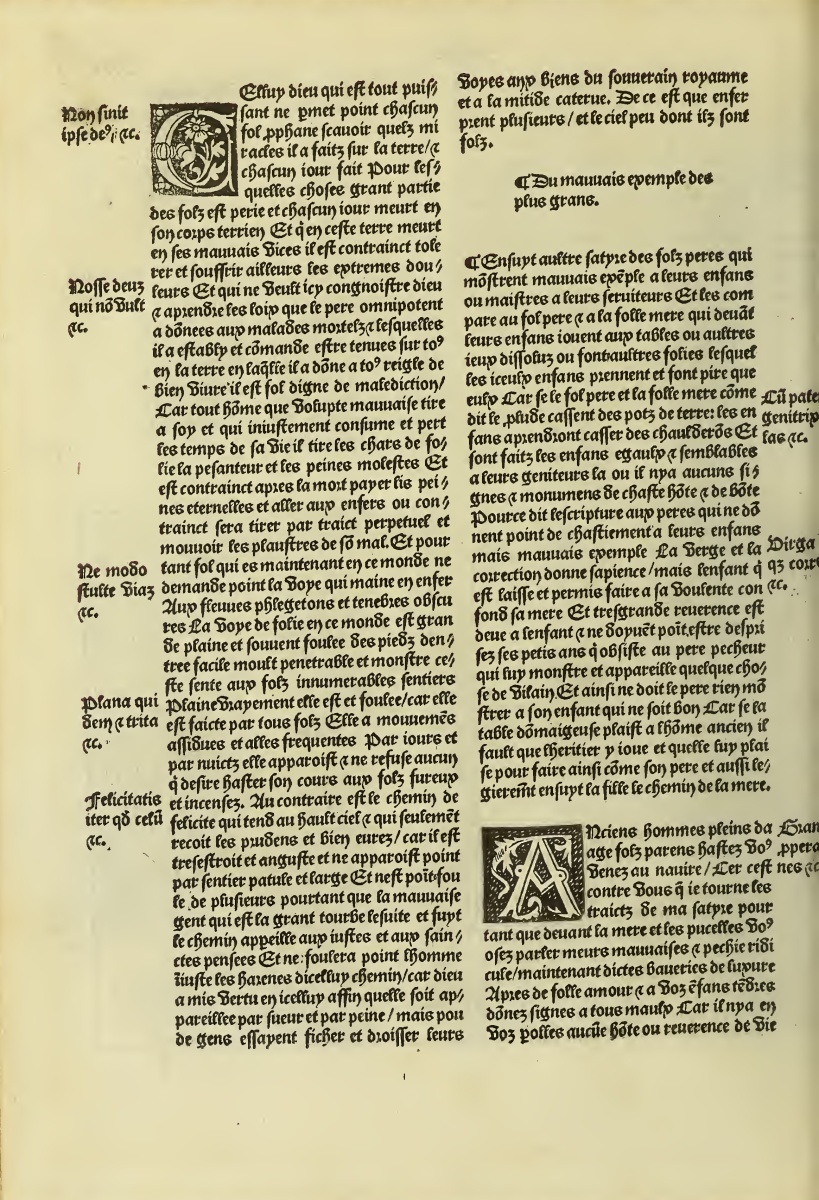 Non sinit
ipse deꝰ, ⁊c.
Nosse deuz
qui nō vult
⁊c.
Ne modo
stulte vias
⁊c.
Plana qui
dem ⁊ trita
⁊c.
Felicitatis
iter qd̄ celū
⁊c.
CElluy dieu qui est tout puis/
sant ne ꝑmet point chascun
fol ꝓphane scauoir quelz mi
racles il a faitz sur la terre/⁊
chascun iour fait Pour les/
quelles choses grant partie
des folz est perie et chascun iour meurt en
son corps terrien Et q̄ en ceste terre meurt
en ses mauuais vices il est contrainct tole
rer et souffrir ailleurs les extremes dou/
leurs Et qui ne veult icy congnoistre dieu
⁊ aprendre les loix que le pere omnipotent
a dōnees aux malades mortelz ⁊ lesquelles
il a establÿ et cōmande estre tenues sur toꝰ
en la terre en laq̄lle il a dōne a toꝰ reigle de
bien viure il est fol digne de malediction/
Car tout hōme que volupte mauuaise tire
a soy et qui iniustement consume et pert
les temps de sa vie il tire les chars de fo/
lie la pesanteur et les peines molestes Et
est contrainct apres la mort payer lis pei/
nes eternelles et aller aux enfers ou con/
trainct sera tirer par traict perpetuel et
mouuoir les plaustres de sō mal. Et pour
tant fol qui es maintenant en ce monde ne
demande point la voye qui maine en enfer
Aux fleuues phlegetons et tenebres obscu
res La voye de folie en ce monde est gran
de plaine et souuent foulee des piedz den/
tree facile moult penetrable et monstre ce/
ste sente aux folz innumerables sentiers
Plaine vrayement elle est et foulee/car elle
est faicte par tous folz Elle a mouuemēs
assidues et alles frequentes Par iours et
par nuictz elle apparoist ⁊ ne refuse aucun
q̄ desire haster son cours aux folz fureux
et incensez. Au contraire est le chemin de
felicite qui tend au hault ciel ⁊ qui seulemēt
recoit les prudens et bien eurez/car il est
tresestroit et anguste et ne apparoist point
par sentier patule et large Et nest poīt fou
le de plusieurs pourtant que la mauuaise
gent qui est la grant tourbe lesuite et fuyt
le chemin appeille aux iustes et aux sain/
ctes pensees Et ne foulera point lhomme
iniuste les harenes dicelluy chemin/car dieu
a mis vertu en icelluy affin quelle soit ap/
pareillee par sueur et par peine/mais pou
de gens essayent ficher et droisser leurs
voyes aux biens du souuerain royaume
et a la mitide caterue. De ce est que enfer
prent plusieurs/et le ciel peu dont ilz sont
folz.
¶ Du mauuais exemple des
plus grans.
¶ Ensuyt aultre satyre des folz peres qui
mōstrent mauuais exēple a leurs enfans
ou maistres a leurs seruiteurs Et les com
pare au fol pere ⁊ a la folle mere qui deuāt
leurs enfans iouent aux tables ou aultres
ieux dissoluz ou font aultres folies lesquel
les iceulx enfans prennent et font pire que
eulx Car se le fol pere et la folle mere cōme
dit le ꝓlude cassent des potz de terre: les en
fans aprendront casser des chaulderōs Et
sont faitz les enfans egaulx ⁊ semblables
a leurs geniteurs la ou il nya aucuns si/
gnes ⁊ monumens de chaste hōte ⁊ de bōte
Pource dit lescripture aux peres qui ne dō
nent point de chastiement a leurs enfans
mais mauuais exemple La verge et la
correction donne sapience/mais lenfant q̄
est laisse et permis faire a sa voulente con
fond sa mere Et tresgrande reuerence est
deue a lenfant ⁊ ne doyuēt poīt estre despri
sez ses petis ans q̄ obsiste au pere pecheur
qui luy monstre et appareille quelque cho/
se de vilain. Et ainsi ne doit le pere rien mō
strer a son enfant qui ne soit bon Car se la
table dōmaigeuse plaist a lhōme ancien il
fault que lheritier y ioue et quelle luy plai
se pour faire ainsi cōme son pere et aussi le/
gieremēt ensuyt la fille le chemin de la mere.
ANciens hommes pleins da
age folz parens hastez voꝰ
venez au nauire/Cer cest
contre vous q̄ ie tourne les
traictz de ma satyre pour
tant que deuant la mere et les pucelles voꝰ
osez parler meurs mauuaises ⁊ pechie ridi
cule/maintenant dictes baueries de luxure
Apres de folle amour ⁊ a voz ēfans tēdres
dōnez signes a tous maulx Car il nya en
voz polles aucūe hōte ou reuerence de vie
Cū pate
genitrix
las ⁊c.
Virga
qz corr
⁊c.
Gran
ꝓpera
nes ⁊c